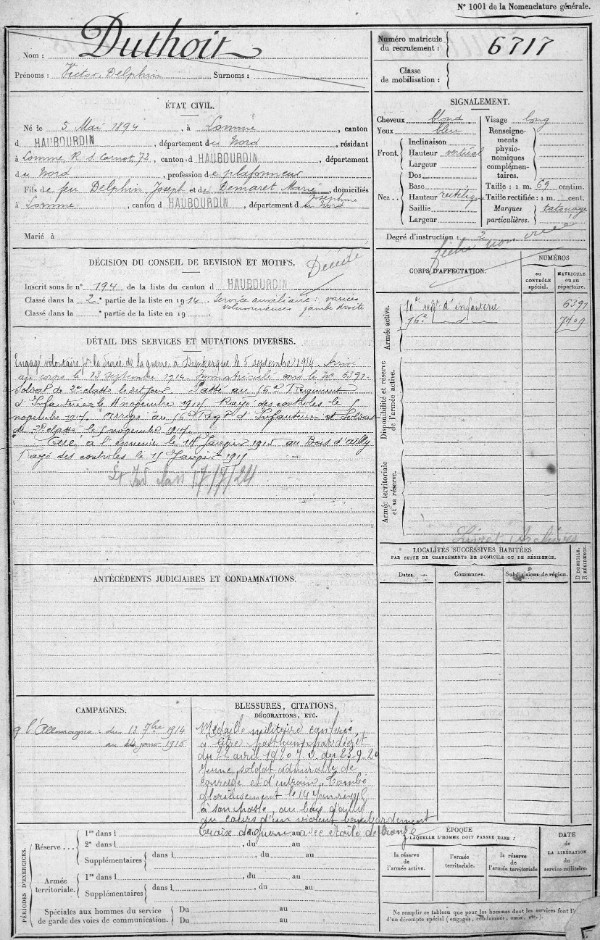 Nº 1001 de la Nomenclature générale.
Nom : Duthoit
Prénoms : Victor Delphin Surnoms :
Numéro matricule du recrutement : 6717
Classe de mobilisation :
ÉTAT CIVIL.
Né le 5 Mai 1894, à Lomme, canton
d HAUBOURDIN, département du Nord, résidant
à Lomme R. S. Carnot 72, canton d HAUBOURDIN, département
du Nord, profession de plafonneur
Fils de feu Delphin Joseph et de Demaret Marie Josephine, domiciliés
à Lomme, canton d HAUBOURDIN, département du Nord
Marié à
SIGNALEMENT.
Cheveux blond Visage long
Yeux bleu Renseignements physionomiques complémentaires.
Front. Inclinaison
Hauteur vertical
Largeur
Nez. Dos
Base
Hauteur rectiligne
Saillie
Largeur
Taille : 1 m. 69 centim.
Taille rectifiée : 1 m. cent.
Marques particulières. tatouage
Degré d'instruction : 2
DÉCISION DU CONSEIL DE REVISION ET MOTIFS.
Décédé
Inscrit sous le nº 194 de la liste du canton d HAUBOURDIN
Classé dans la 2e partie de la liste en 1914 Service auxiliaire : varices
Classé dans la partie de la liste en 19 volumineuses jambe droite
CORPS D'AFFECTATION.
NUMÉROS
AU CONTRÔLE SPÉCIAL.
MATRICULE AU RÉPERTOIRE.
Armée active.
10e régt d'infanterie 6391
56e
Disponibilité et réserve de l'armée active.
Armée territoriale et sa réserve.
DÉTAIL DES SERVICES ET MUTATIONS DIVERSES.
Engagé volontaire pr la durée de la guerre, à Dunkerque le 5 septembre 1914. Arrivé
au corps le 13 septembre 1914. Immatriculé sous le Nº 6391
Soldat de 2e classe le dit jour. Passé au 56e Régiment
d'Infanterie le novembre 1914. Rayé des contrôles le
novembre 1914. Arrivé au 56e Régt d'Infanterie et Soldat
de 2e classe le novembre 1914.
Tué à l'ennemi le 14 Janvier 1915 au Bois d'Ailly
Rayé des contrôles le 15 Janvier 1915
ANTÉCÉDENTS JUDICIAIRES ET CONDAMNATIONS.
LOCALITÉS SUCCESSIVES HABITÉES
PAR SUITE DE CHANGEMENTS DE DOMICILE OU DE RÉSIDENCE.
Dates. Communes. Subdivisions de région. D DOMICILE. R RÉSIDENCE.
CAMPAGNES.
c. l'Allemagne : du 13 7bre 1914
au 14 janv. 1915
BLESSURES, CITATIONS,
DÉCORATIONS, ETC.
Médaille militaire conférée
à titre posthume par décret
du avril 1920 J.O. du 23.9.20
Jeune soldat admirable de
courage et d'entrain. Tombé
glorieusement le 14 Janvier 1915
à son poste, au bois d'Ailly
au cours d'un violent bombardement
Croix de guerre avec étoile de bronze
PÉRIODES D'EXERCICES.
Réserve. 1re dans l , du au
2e dans l , du au
Supplémentaires dans l , du au
Armée territoriale. 1re dans l , du au
Supplémentaires dans l , du au
Spéciales aux hommes du service de garde des voies de communication. Du au
Du au
ÉPOQUE
À LAQUELLE L'HOMME DOIT PASSER DANS :
la réserve de l'armée active. l'armée territoriale. la réserve de l'armée territoriale.
DATE DE LA LIBÉRATION du service militaire.